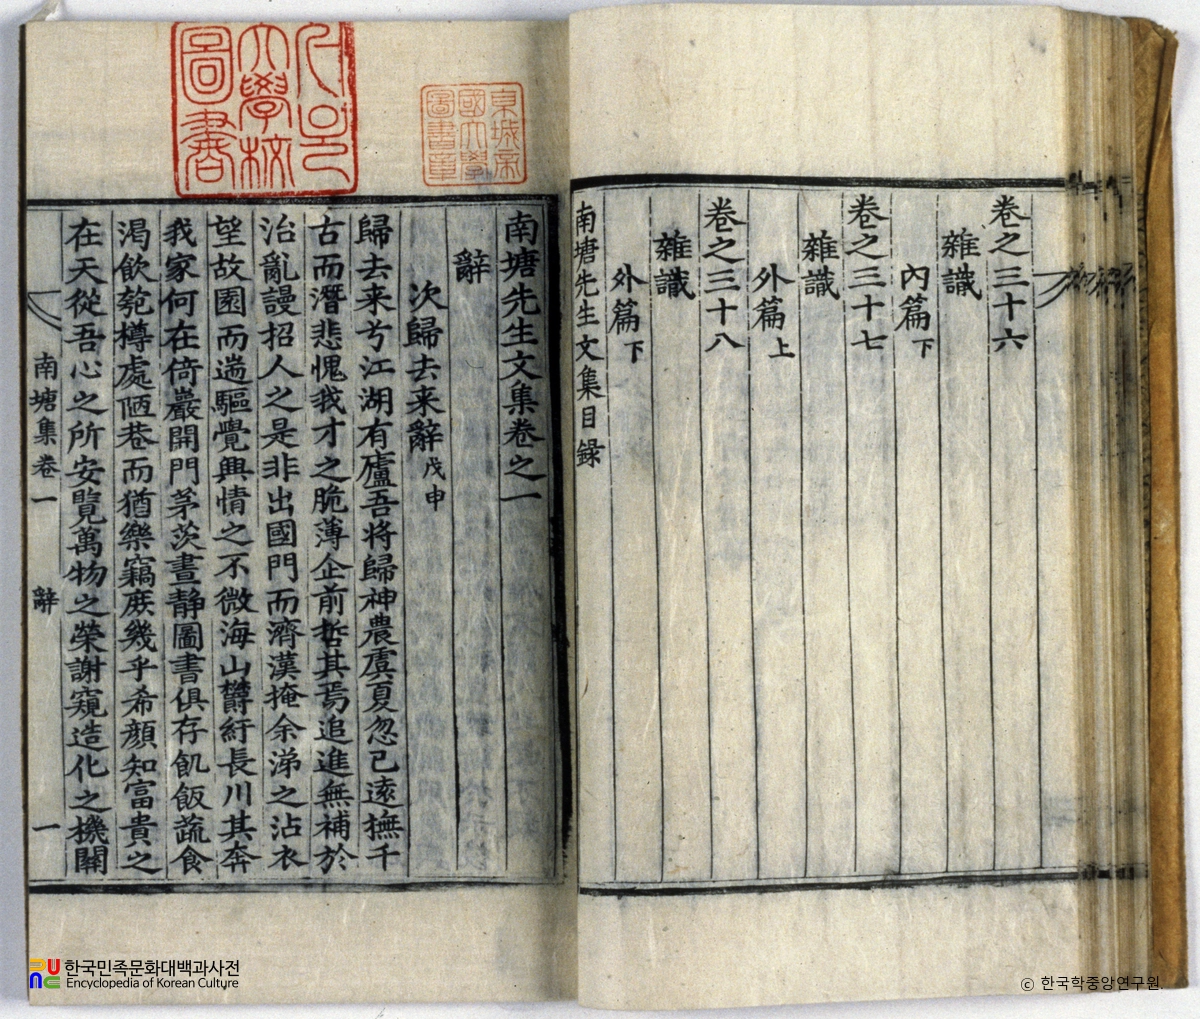 卷之三十六
雜識
內篇下
卷之三十七
雜識
外篇上
卷之三十八
雜識
外篇下
南塘先生文集目錄
南塘先生文集卷之一
辭
次歸去来辭戊申
歸去来兮江湖有廬吾将歸神農虞夏忽已遠撫千
古而潛悲愧我才之脆薄企前哲其焉追進無補於
治亂謾招人之是非出國門而濟漢掩余涕之沾衣
望故園而遄驅覺興情之不微海山欝紆長川其奔
我家何在倚巖開門茅茨晝静圖書俱存飢飯蔬食
渴飲匏樽處陋巷而猶樂竊庶幾乎希顔知富貴之
在天從吾心之所安覽萬物之榮謝窺造化之機關
南塘集卷一
辭
一
大學校
圖書
京城帝
國大學
圖書章
한국민족문화대백과사전
Encyclopedia of Korean Culture
ⓒ 한국학중앙연구원